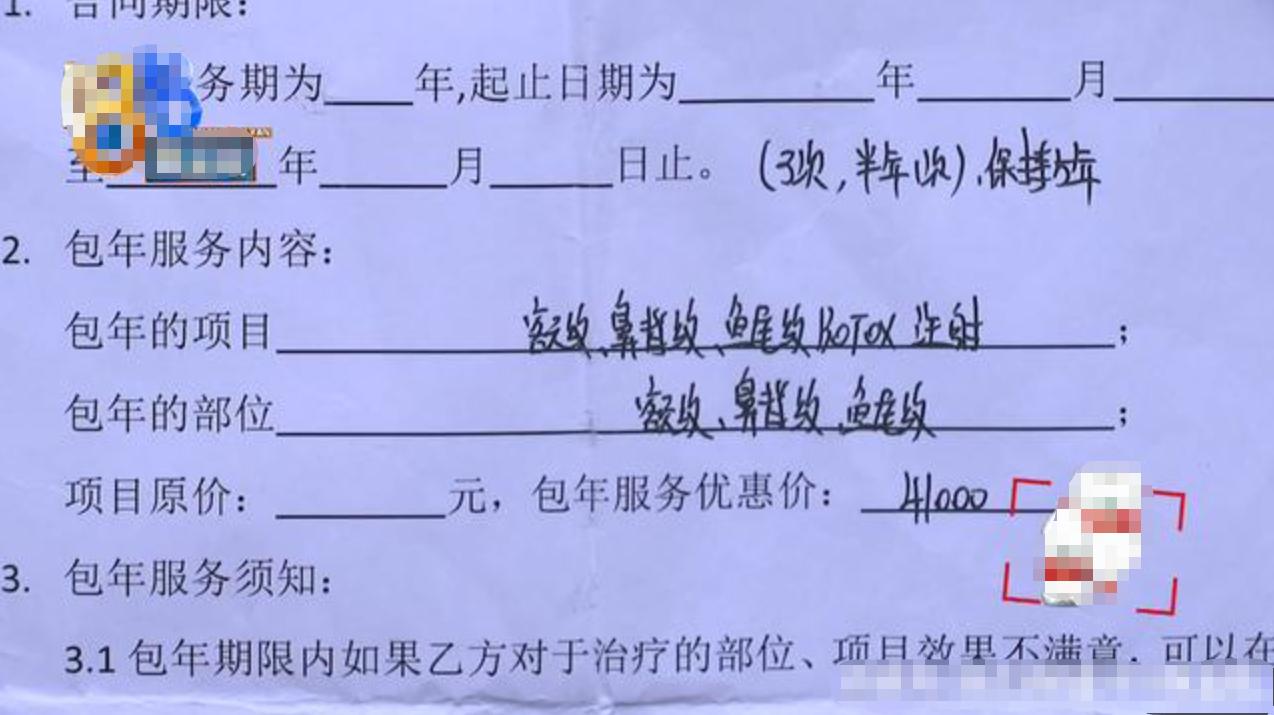 1. 合同期限:
务期为____年,起止日期为________年______月______
至________年______月_____日止。(3次,半年1次).保持5年
2. 包年服务内容:
包年的项目 额纹、鼻背纹、鱼尾纹 BOTOX 注射 ;
包年的部位 额纹、鼻背纹、鱼尾纹 ;
项目原价: ______元, 包年服务优惠价: 41000
3. 包年服务须知:
3.1 包年期限内如果乙方对于治疗的部位、项目效果不满意,可以在